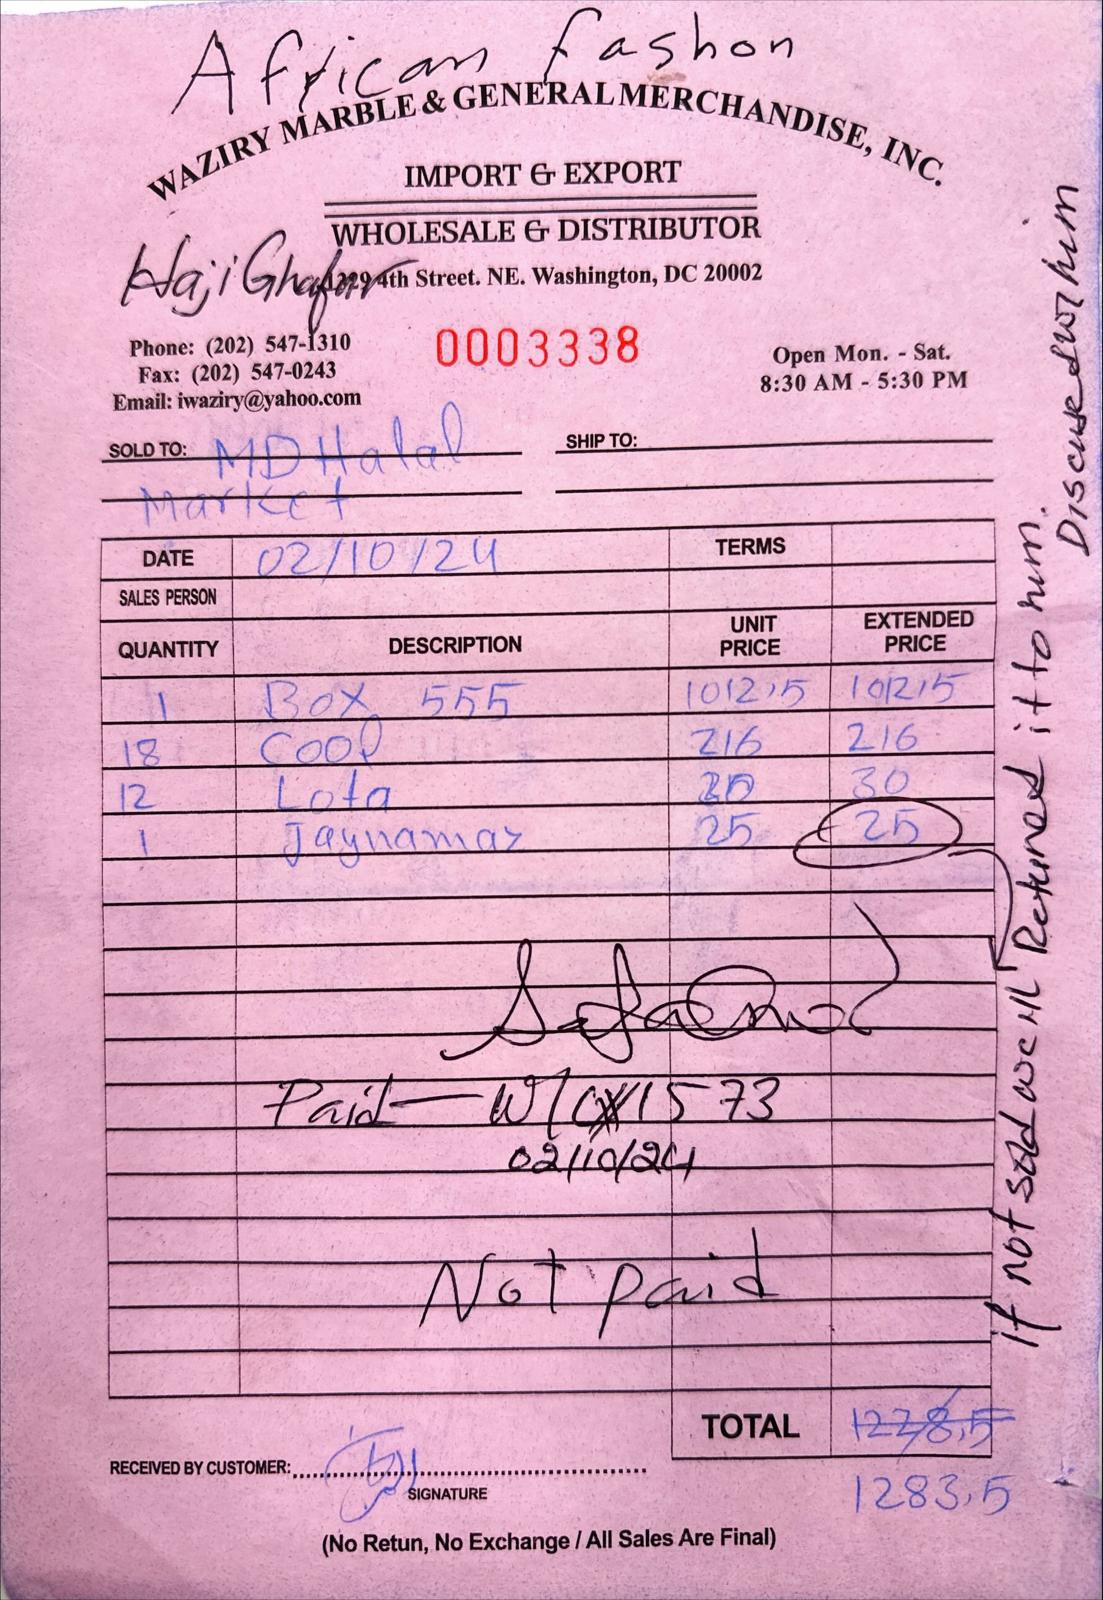 African fashon
WAZIRY MARBLE & GENERAL MERCHANDISE, INC.
IMPORT & EXPORT
WHOLESALE & DISTRIBUTOR
Haji Ghafar
1229 4th Street. NE. Washington, DC 20002
Phone: (202) 547-1310
Fax: (202) 547-0243
Email: iwaziry@yahoo.com
0003338
Open Mon. - Sat.
8:30 AM - 5:30 PM
SOLD TO: MD Halal
Market
SHIP TO:
DATE 02/10/24 TERMS
SALES PERSON
QUANTITY DESCRIPTION UNIT PRICE EXTENDED PRICE
1 Box 555 1012,5 1012,5
18 Cool 216 216
12 Lota 30 30
1 Jaynamaz 25 25
Paid — W/ 1573
02/10/24
Not paid
TOTAL 1228,5
1283,5
RECEIVED BY CUSTOMER:
SIGNATURE
(No Retun, No Exchange / All Sales Are Final)
if not sold we'll Retuned it to him.
Discused w/ him